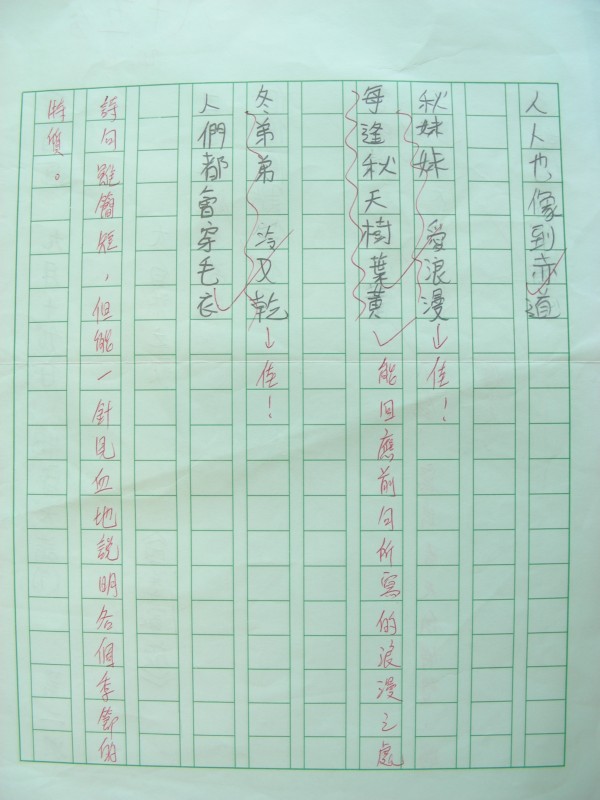 人人也像到赤道
秋妹妹 愛浪漫→佳！
每逢秋天樹葉黃 能回應前句所寫的浪漫之處
冬弟弟 冷又乾→佳！
人們都會穿毛衣
詩句雖簡短，但能一針見血地說明各個季節的
特質。